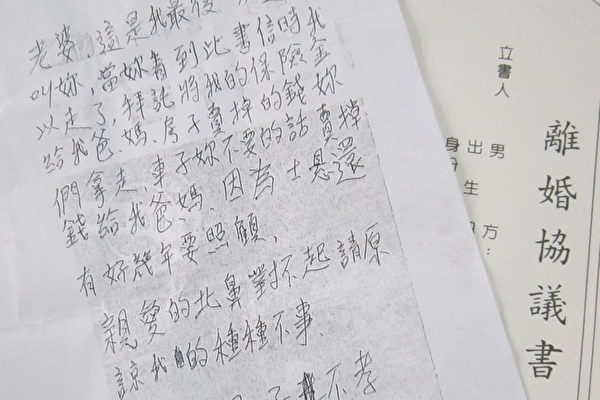 老婆,這是我最後
叫妳,當妳看到此書信時我
以走了,拜託將我的保險金
給我爸、媽、房子賣掉的錢妳
們拿走,車子妳不要的話賣掉
錢給我爸媽、因為士恩還
有好幾年要照顧,
親愛的北鼻對不起請原
諒我的種種不事
不孝
離婚協議書
立書人
男方:
出生
身分